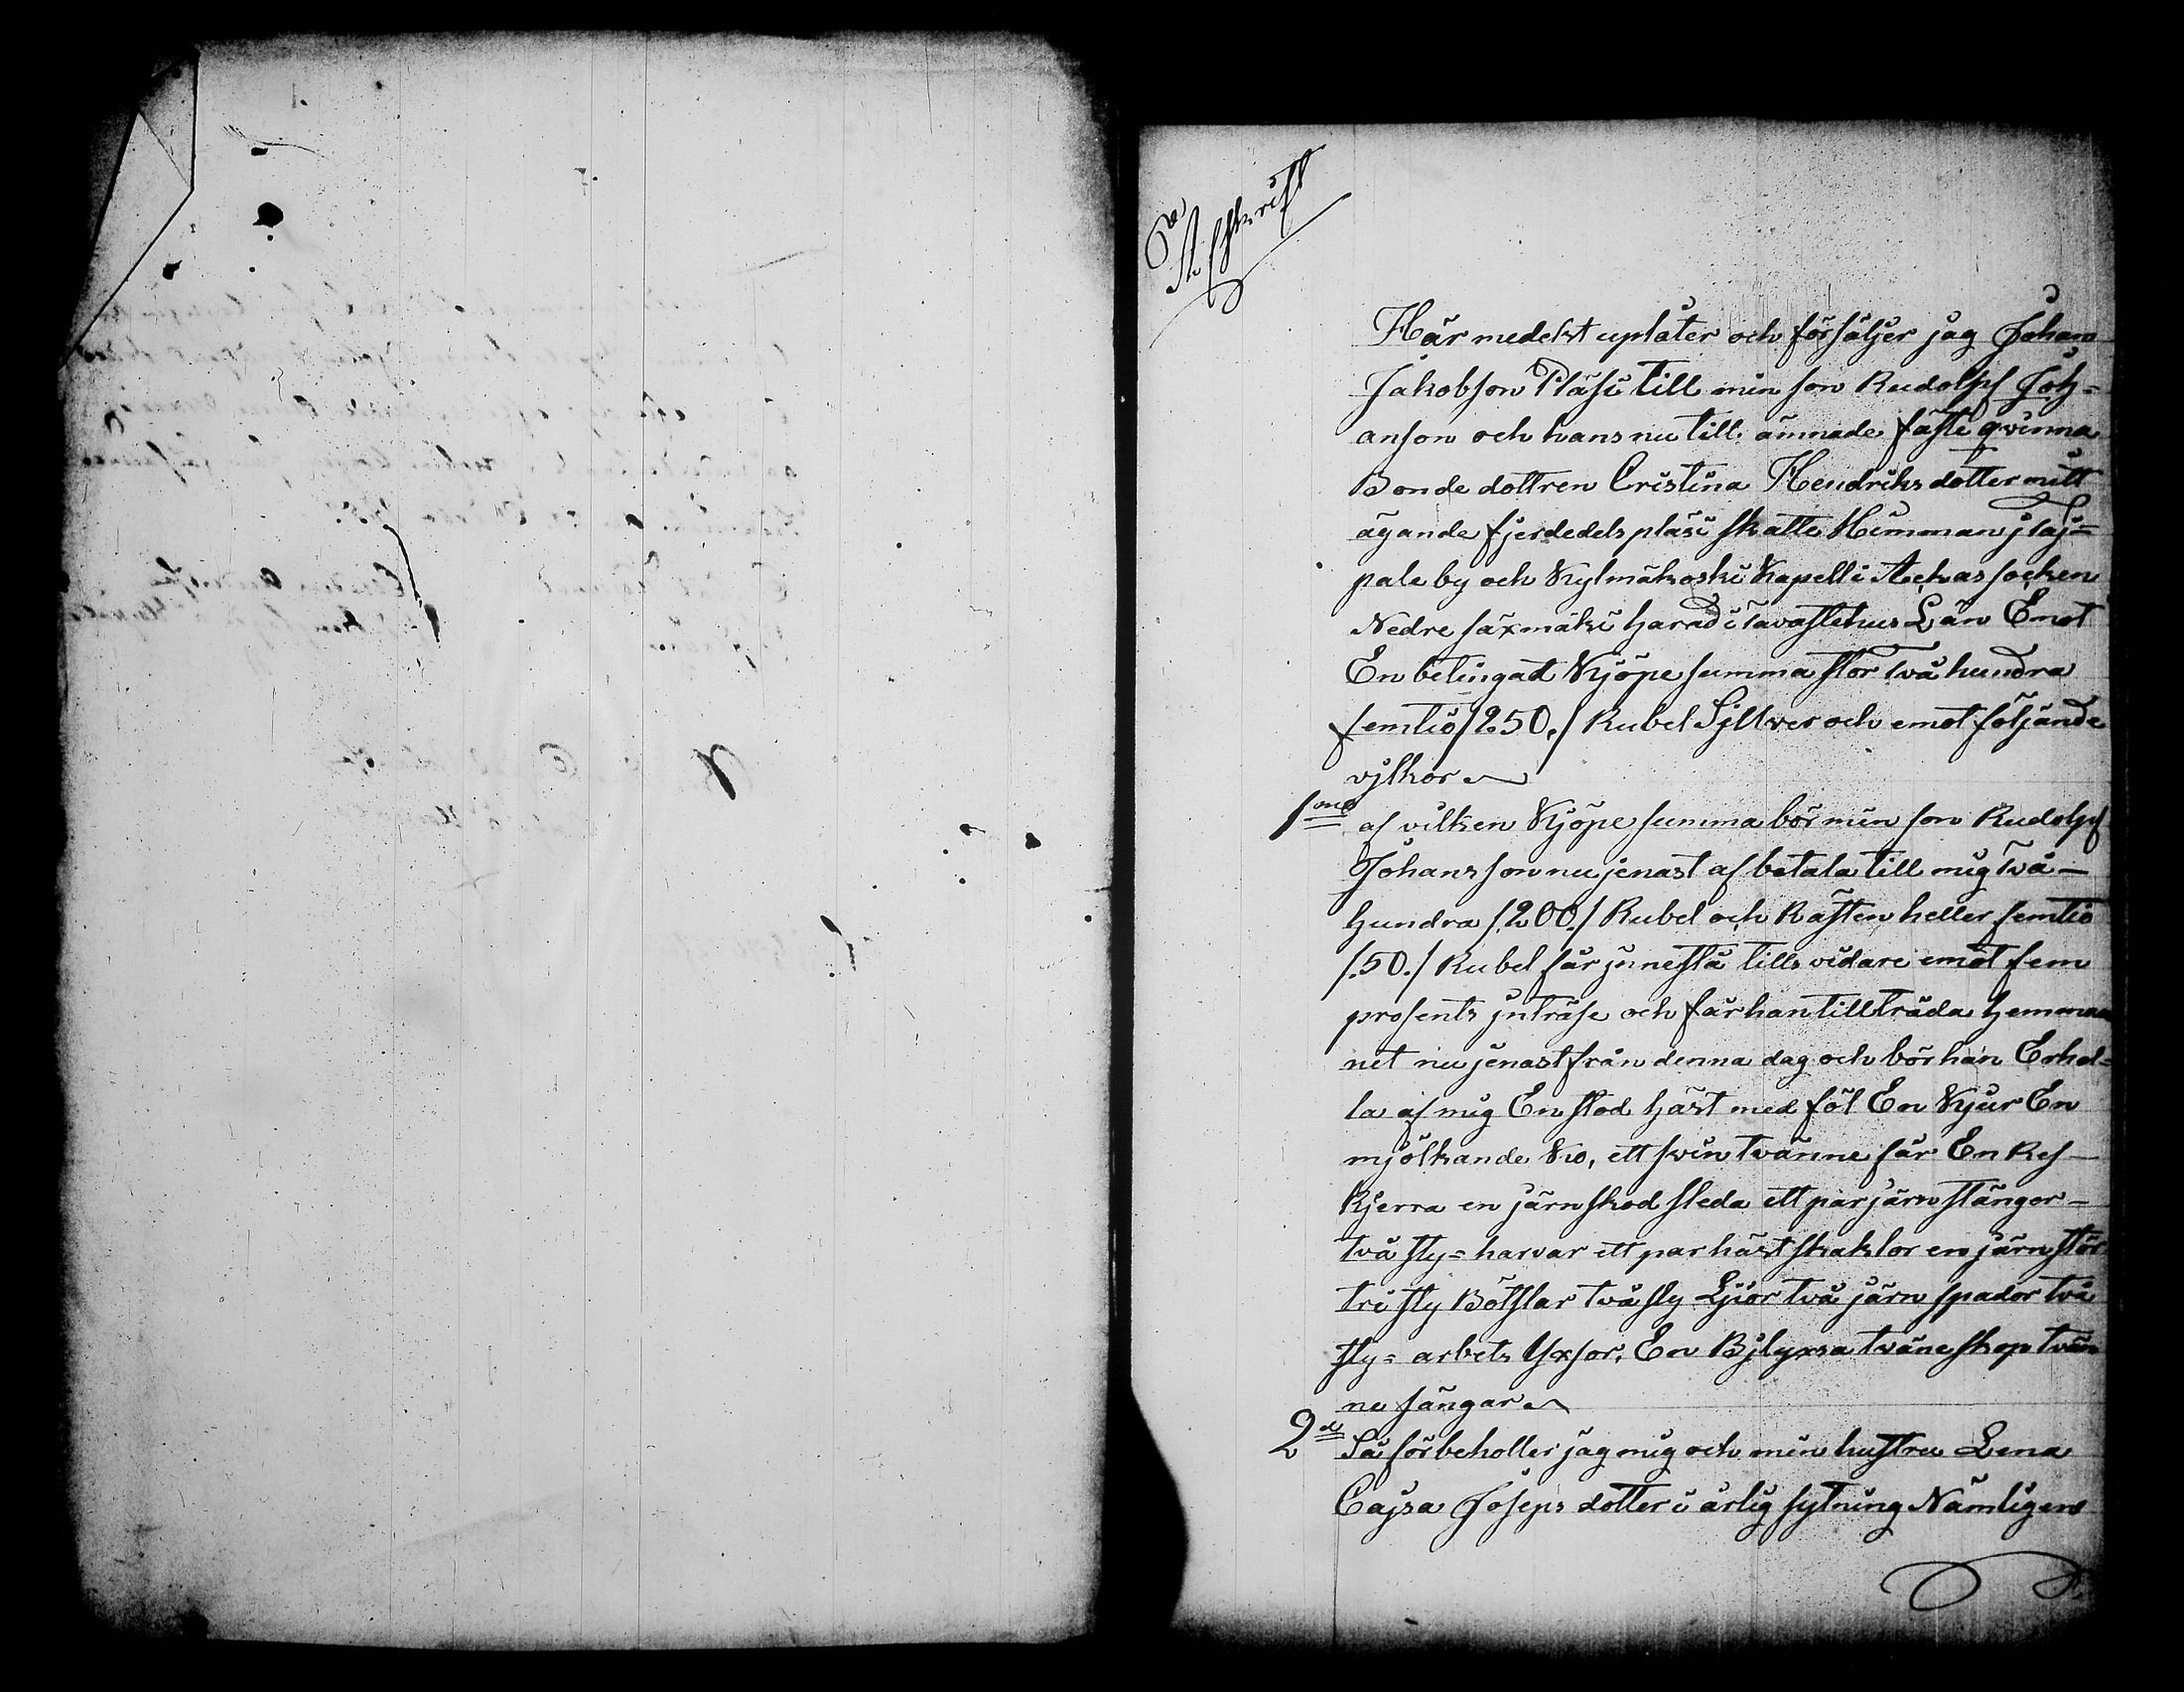 Afskrift
Här medelst uplåter och försäljer jag Johan
Jakobson Pläsi till min son Rudolpf Joh=
anson och hans nu till ämnade fäste qvinna
Bonde dottren Cristina Hendriks dotter mitt
ägande fjerdedels pläsi skatte Hemman j laj=
pale by och Kylmäkoski Kapell i Ackas socken
Nedre säxmäki härad i Tavastehus Län Emot
En betingad Kjöpe summa stor Två hundra
femtio /250./ Rubel Sillver och emot följande
vjlkor
1mo af vilken Kjöpe summa bör min son Rudolpf
Johansson nu jenast af betala till mig Två-
hundra /200./ Rubel och Rästen heller femtio
/.50./ Rubel får jnnestå tills vidare emot fem
prosents jnträse och får han tillträda hemma
net nu jenast från denna dag och bör han Erhol=
la af mig En stod häst med föl En Kjur En
mjölkande Ko, ett svin tvänne får En Res-
Kjerra en järnskod sleda ett par järn stänger-
två sty= harvar ett par häst skaklor en järn stör
tri sty Bötslar två sty Ljior två järn spador två
sty= arbets Yxsor, En Bjlyxsa tväne skop tvän
ne sängar
2do Så förbeholler jag mig och min hustru Lena
Cajsa Joseps dotter i årlig sytning Nämligen